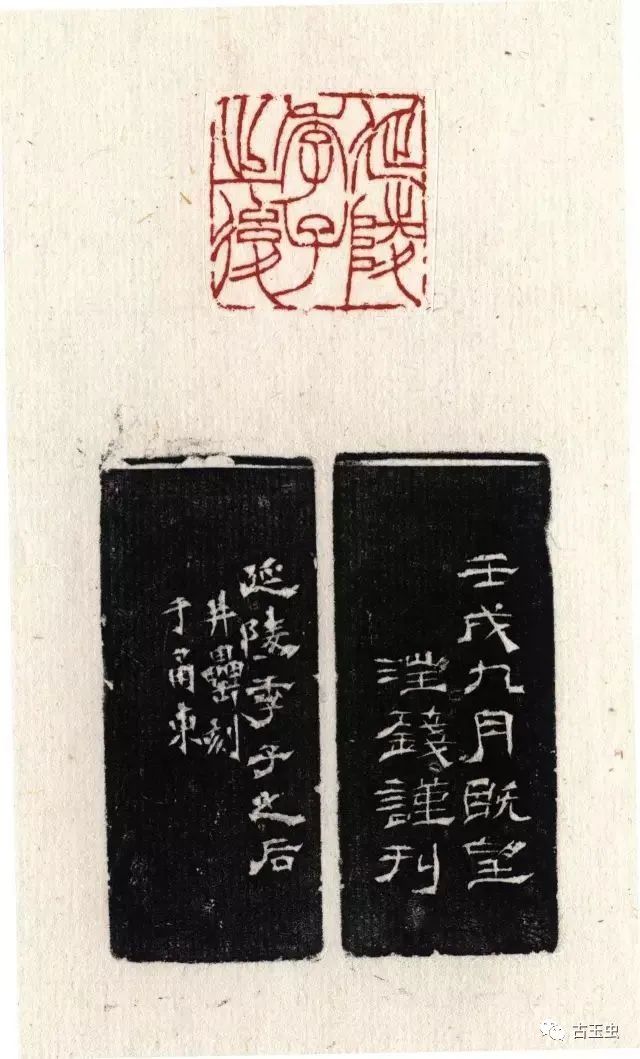 延陵
季子
之後
壬戌九月既望
謹刊
延陵季子之后
井罍刻
于甬東
古玉虫